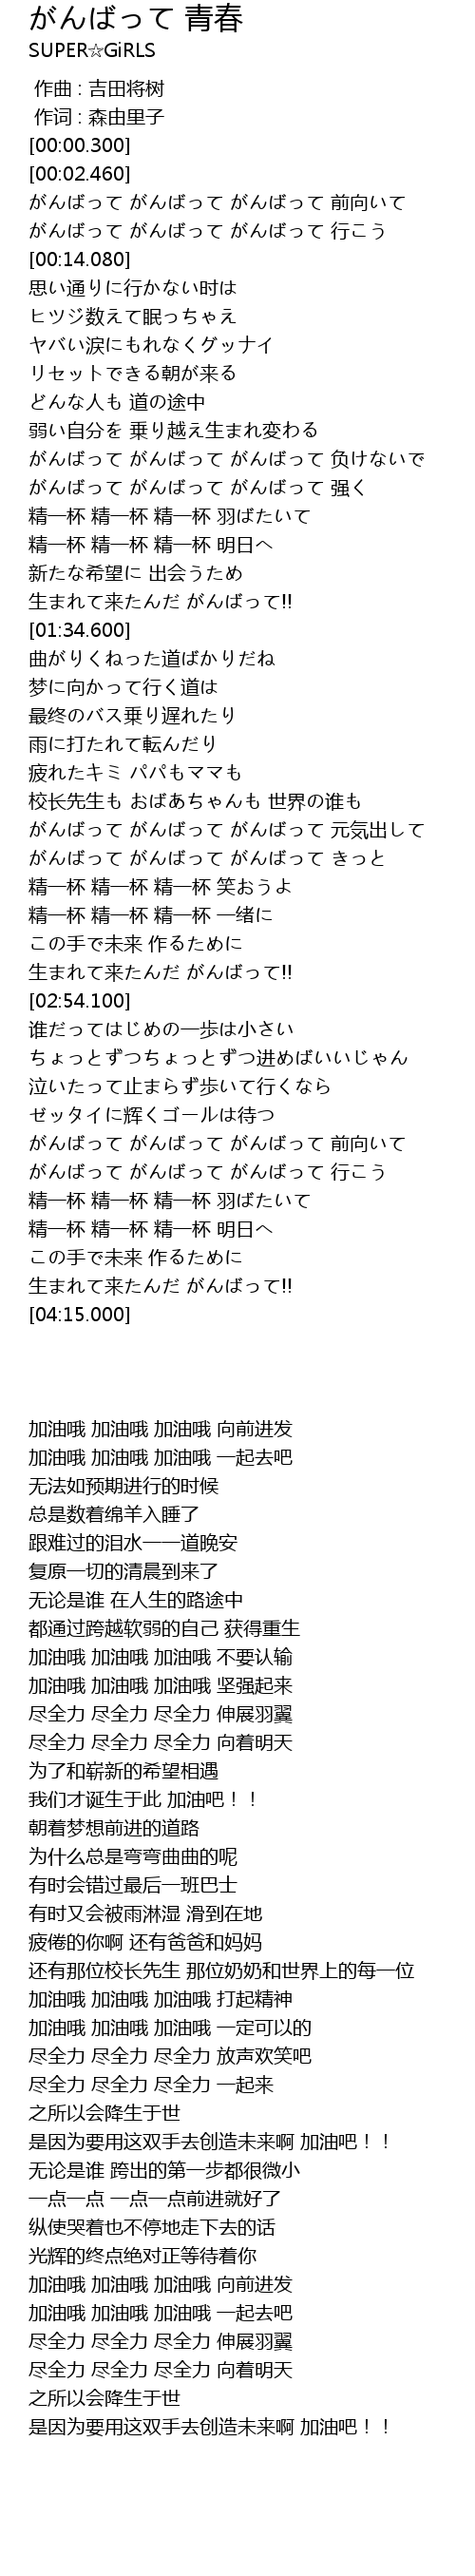 がんばって 青春
SUPER☆GiRLS
作曲 : 吉田将树
作词 : 森由里子
[00:00.300]
[00:02.460]
がんばって がんばって がんばって 前向いて
がんばって がんばって がんばって 行こう
[00:14.080]
思い通りに行かない时は
ヒツジ数えて眠っちゃえ
ヤバい涙にもれなくグッナイ
リセットできる朝が来る
どんな人も 道の途中
弱い自分を 乗り越え生まれ変わる
がんばって がんばって がんばって 负けないで
がんばって がんばって がんばって 强く
精一杯 精一杯 精一杯 羽ばたいて
精一杯 精一杯 精一杯 明日へ
新たな希望に 出会うため
生まれて来たんだ がんばって!!
[01:34.600]
曲がりくねった道ばかりだね
梦に向かって行く道は
最终のバス乗り遅れたり
雨に打たれて転んだり
疲れたキミ パパもママも
校长先生も おばあちゃんも 世界の谁も
がんばって がんばって がんばって 元気出して
がんばって がんばって がんばって きっと
精一杯 精一杯 精一杯 笑おうよ
精一杯 精一杯 精一杯 一绪に
この手で未来 作るために
生まれて来たんだ がんばって!!
[02:54.100]
谁だってはじめの一歩は小さい
ちょっとずつちょっとずつ进めばいいじゃん
泣いたって止まらず歩いて行くなら
ゼッタイに辉くゴールは待つ
がんばって がんばって がんばって 前向いて
がんばって がんばって がんばって 行こう
精一杯 精一杯 精一杯 羽ばたいて
精一杯 精一杯 精一杯 明日へ
この手で未来 作るために
生まれて来たんだ がんばって!!
[04:15.000]
加油哦 加油哦 加油哦 向前进发
加油哦 加油哦 加油哦 一起去吧
无法如预期进行的时候
总是数着绵羊入睡了
跟难过的泪水一一道晚安
复原一切的清晨到来了
无论是谁 在人生的路途中
都通过跨越软弱的自己 获得重生
加油哦 加油哦 加油哦 不要认输
加油哦 加油哦 加油哦 坚强起来
尽全力 尽全力 尽全力 伸展羽翼
尽全力 尽全力 尽全力 向着明天
为了和崭新的希望相遇
我们才诞生于此 加油吧！！
朝着梦想前进的道路
为什么总是弯弯曲曲的呢
有时会错过最后一班巴士
有时又会被雨淋湿 滑到在地
疲倦的你啊 还有爸爸和妈妈
还有那位校长先生 那位奶奶和世界上的每一位
加油哦 加油哦 加油哦 打起精神
加油哦 加油哦 加油哦 一定可以的
尽全力 尽全力 尽全力 放声欢笑吧
尽全力 尽全力 尽全力 一起来
之所以会降生于世
是因为要用这双手去创造未来啊 加油吧！！
无论是谁 跨出的第一步都很微小
一点一点 一点一点前进就好了
纵使哭着也不停地走下去的话
光辉的终点绝对正等待着你
加油哦 加油哦 加油哦 向前进发
加油哦 加油哦 加油哦 一起去吧
尽全力 尽全力 尽全力 伸展羽翼
尽全力 尽全力 尽全力 向着明天
之所以会降生于世
是因为要用这双手去创造未来啊 加油吧！！